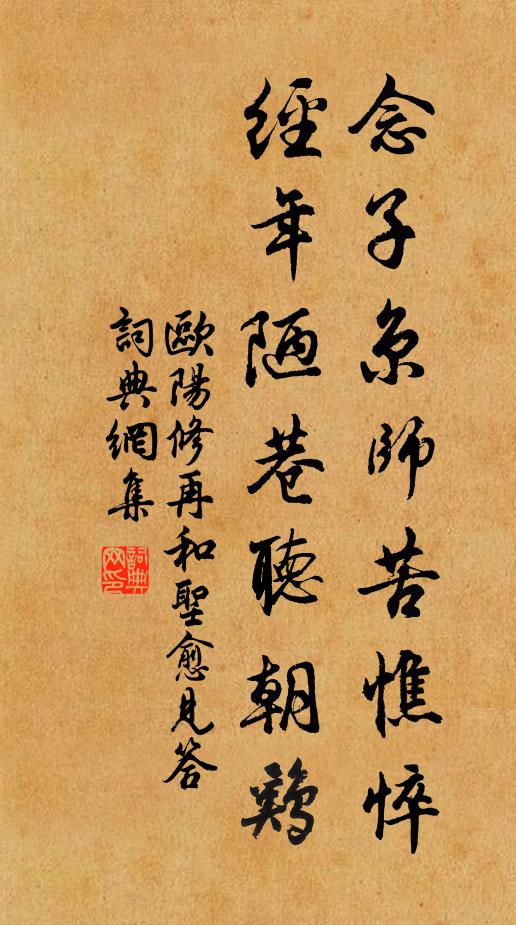 念子京師苦憔悴
經年陋巷聽朝鷄
歐陽修再和聖愈見答
詞典網集
詞典
网印